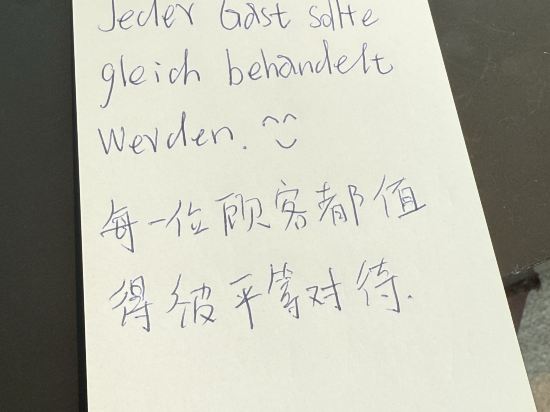 Jeder Gast sollte
gleich behandelt
werden. ^^
每一位顾客都值
得彼平等对待.